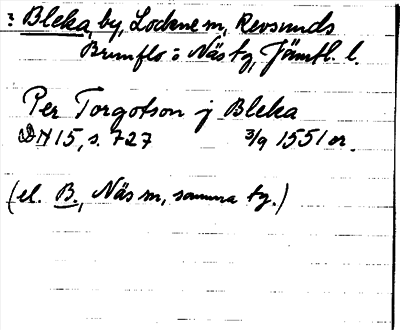 ? Bleka, by, Lockne m, Revsunds
Brunflo o Näs tg, Jämtl. l.
Per Torgotson j Bleka
DN 15, s. 727 3/9 1551 or.
(el. B., Näs m, samma tg.)